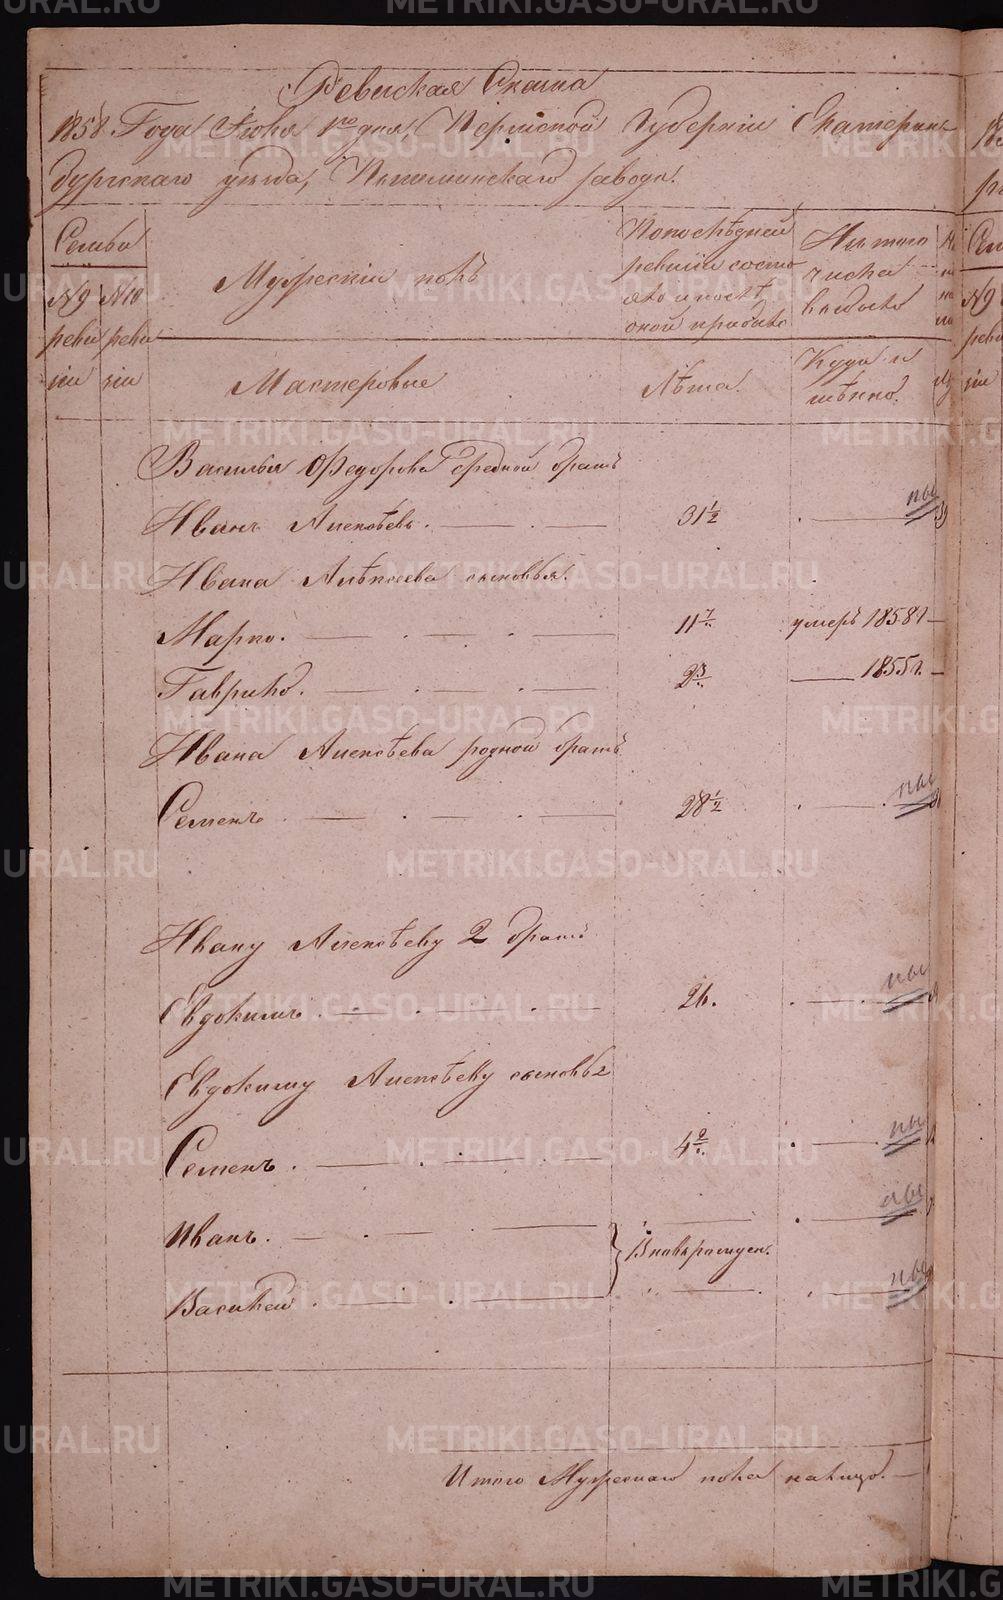 Ревиская Скаска
1858 Года Июня 1го дня, Пермской Губерніи Екатерин-
бургскаго уѣзда, Пышминскаго завода.
Семьи
№ 9 ревизіи
№ 10 ревизіи
Мужескій полъ
По послѣдней
ревизіи состо
яло и послѣ
оной прибыло
Изъ того
числа
выбыло
Мастеровые
Лѣта.
Куда и
Василья Федорова Средной братъ
Иванъ Алексѣевъ. 31 1/2
Ивана Алѣксеева сыновья.
Марко. 11 7/.. умеръ 1858 г
Гаврило. 2 3/.. 1855 г.
Ивана Алексѣева родной братъ
Семенъ 28 1/2
Ивану Алексѣеву 2 братъ
Евдокимъ. 26.
Евдокиму Алексѣеву сыновья
Семенъ. 4 9/..
Иванъ. Вновь рожден.
Василей
Итого Мужескаго пола на лицо.
METRIKI.GASO-URAL.RU